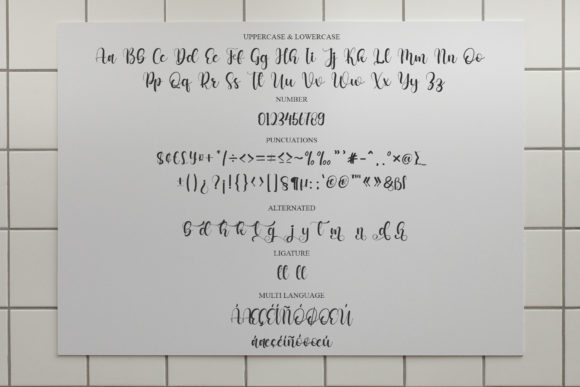 UPPERCASE & LOWERCASE
Aa Bb Cc Dd Ee Ff Gg Hh Ii Jj Kk Ll Mm Nn Oo
Pp Qq Rr Ss Tt Uu Vv Ww Xx Yy Zz
NUMBER
0123456789
PUNCUATIONS
$¢€£¥¤+*/÷<>=≠≤≥~%‰"'#-^_.°×@Σ
±()¿?¡!{}<>[]§¶µ::'@®"™«»&ßſ
ALTERNATED
b d h k t g j y t m n d h
LIGATURE
ll ll
MULTI LANGUAGE
ÁÆÇÉÍÑÓØŒÚ
áæçéíñóøœú